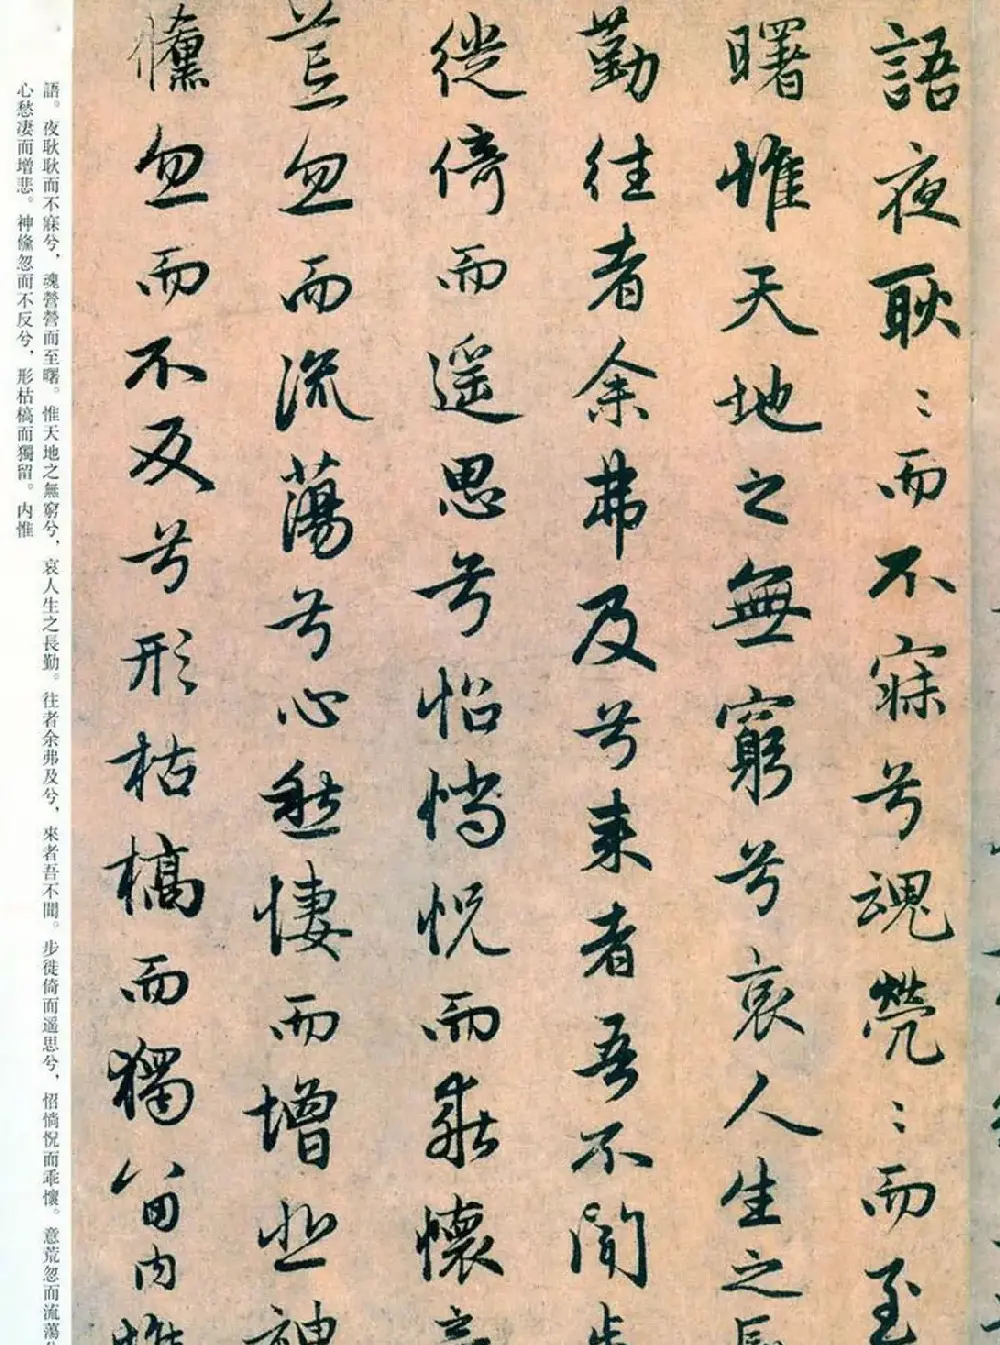 語夜耿〻而不寐兮魂煢〻而至
曙惟天地之無窮兮哀人生之長
勤往者余弗及兮来者吾不聞步
徙倚而遥思兮怊惝怳而乖懷意
荒忽而流蕩兮心愁悽而增悲神
儵忽而不反兮形枯槁而獨留内惟
語。夜耿耿而不寐兮，魂營營而至曙。惟天地之無窮兮，哀人生之長勤。往者余弗及兮，來者吾不聞。步徙倚而遥思兮，怊惝怳而乖懷。意荒忽而流蕩兮
心愁凄而增悲。神儵忽而不反兮，形枯槁而獨留。内惟